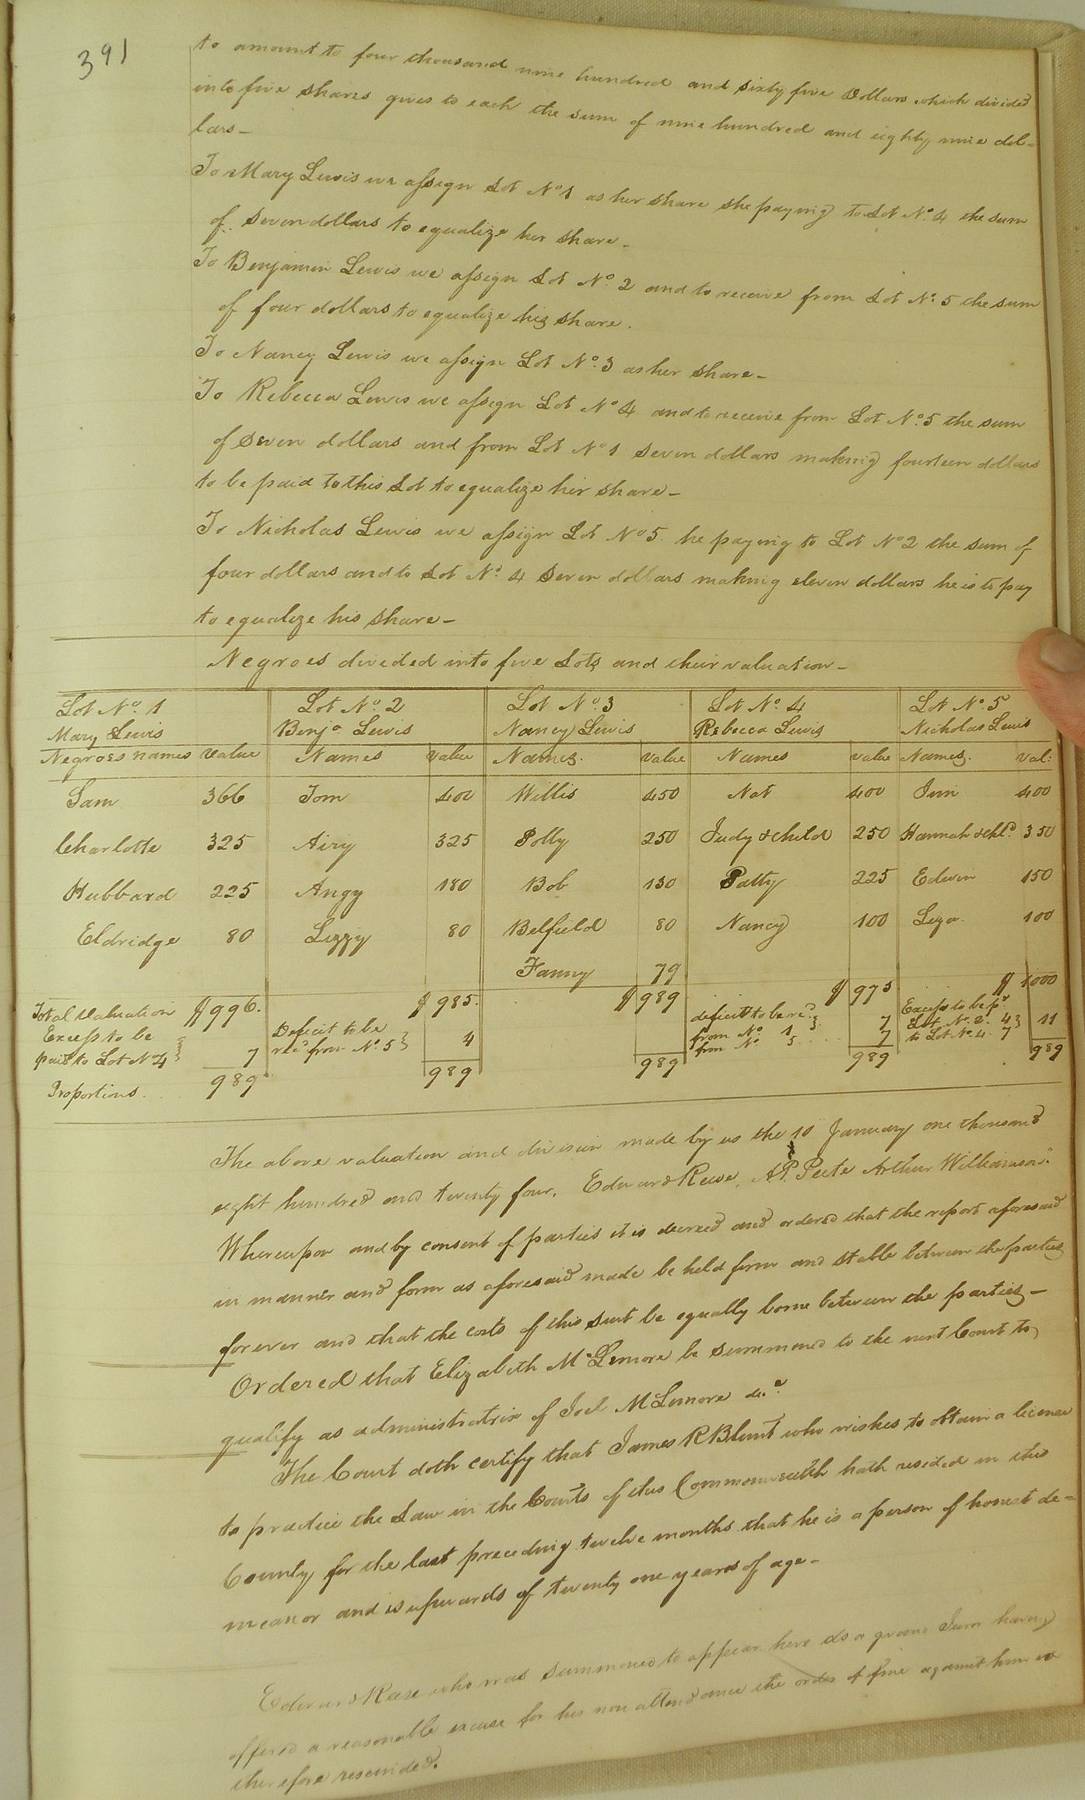 391
to amount to four thousand nine hundred and sixty five Dollars which divided
into five shares gives to each the sum of nine hundred and eighty nine dol-
lars-
To Mary Lewis we assign Lot No 1 as her share she paying to Lot No. 4 the sum
of seven dollars to equalize her share-
To Benjamin Lewis we assign Lot No. 2 and to receive from Lot No. 5 the sum
of four dollars to equalize his share.
To Nancy Lewis we assign Lot No. 3 as her share-
To Rebecca Lewis we assign Lot No 4 and to receive from Lot No. 5 the sum
of seven dollars and from Lot No 1 seven dollars making fourteen dollars
to be paid to this Lot to equalize her share-
To Nicholas Lewis we assign Lot No 5 he paying to Lot No 2 the sum of
four dollars and to Lot No. 4 seven dollars making eleven dollars he is to pay
to equalize his share-
Negroes divided into five Lots and their valuation-
Lot No. 1 Lot No. 2 Lot No. 3 Lot No. 4 Lot No. 5
Mary Lewis Benja Lewis Nancy Lewis Rebecca Lewis Nicholas Lewis
Negroes names value Names value Names. value Names value Names. val:
Sam 366 Tom 400 Willis 450 Nat 400 Jim 400
Charlotte 325 Airy 325 Polly 250 Judy & child 250 Hannah & chld. 350
Hubbard 225 Angy 180 Bob 130 Patty 225 Edwin 150
Eldridge 80 Lizzy 80 Belfield 80 Nancy 100 Liza 100
Fanny 79
Total valuation $996. $985. $989 $975 $1000
Excess to be paid to Lot No 4 } 7
Deficit to be recd from No. 5 } 4
deficit to be recd from No. 1 7
from No 5 7
Excess to be pd. Lot No. 2. 4 } 11
to Lot No. 4 7
Proportions. 989 989 989 989 989
The above valuation and division made by us the 10 January one thousand
eight hundred and twenty four. Edward Reese, A P. Peete Arthur Williamson.
Whereupon and by consent of parties it is decreed and ordered that the report aforesaid
in manner and form as aforesaid made be held firm and stable between the parties
forever and that the costs of this suit be equally borne between the parties-
Ordered that Elizabeth McLemore be summoned to the next Court to
qualify as administratrix of Joel McLemore dec.
The Court doth certify that James R Blunt who wishes to obtain a license
to practice the Law in the Courts of this Commonwealth hath resided in this
County for the last preceding twelve months that he is a person of honest de-
meanor and is upwards of twenty one years of age-
Edward Reese who was summoned to appear here as a grand Juror having
offered a reasonable excuse for his non attendance the order of fine against him is
therefore rescinded.